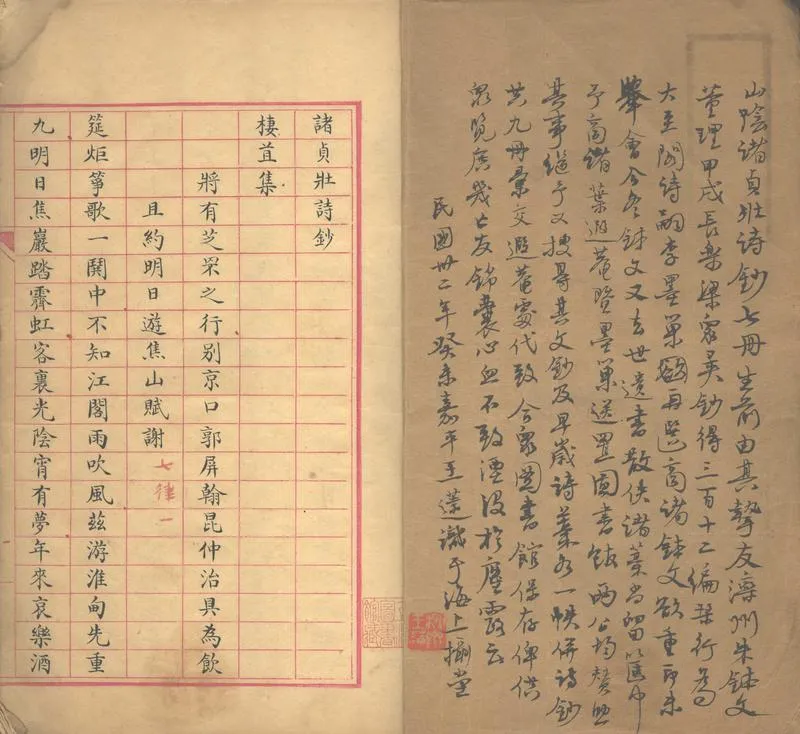 山陰諸貞壯詩鈔七冊生前由其摯友州朱鉢文
董理甲戌長樂梁眾異鈔得三百十二編栞行爲
大至閣詩嗣李墨巢欲再選商諸鉢文欲重印未
舉會今冬鉢文又去世遺書散佚諸藁尚留匧中
予商諸葉遐菴暨墨巢送置圖書館兩公均贊
其事繼予又搜得其文鈔及早歲詩藁各一帙併詩鈔
共九冊彙交遐菴處代致合眾圖書館保存俾供
眾覽庶幾亡友錦囊心血不致湮沒於塵露云
民國卅二年癸未嘉平王識于海上攝堂
諸貞壯詩鈔
棲苴集
將有芝罘之行別京口郭屏翰昆仲治具為飲
且約明日遊焦山賦謝 七律一
筵炬箏歌一鬨中不知江閣雨吹風茲游淮甸先重
九明日焦巖踏霽虹客裏光陰宵有夢年來哀樂酒